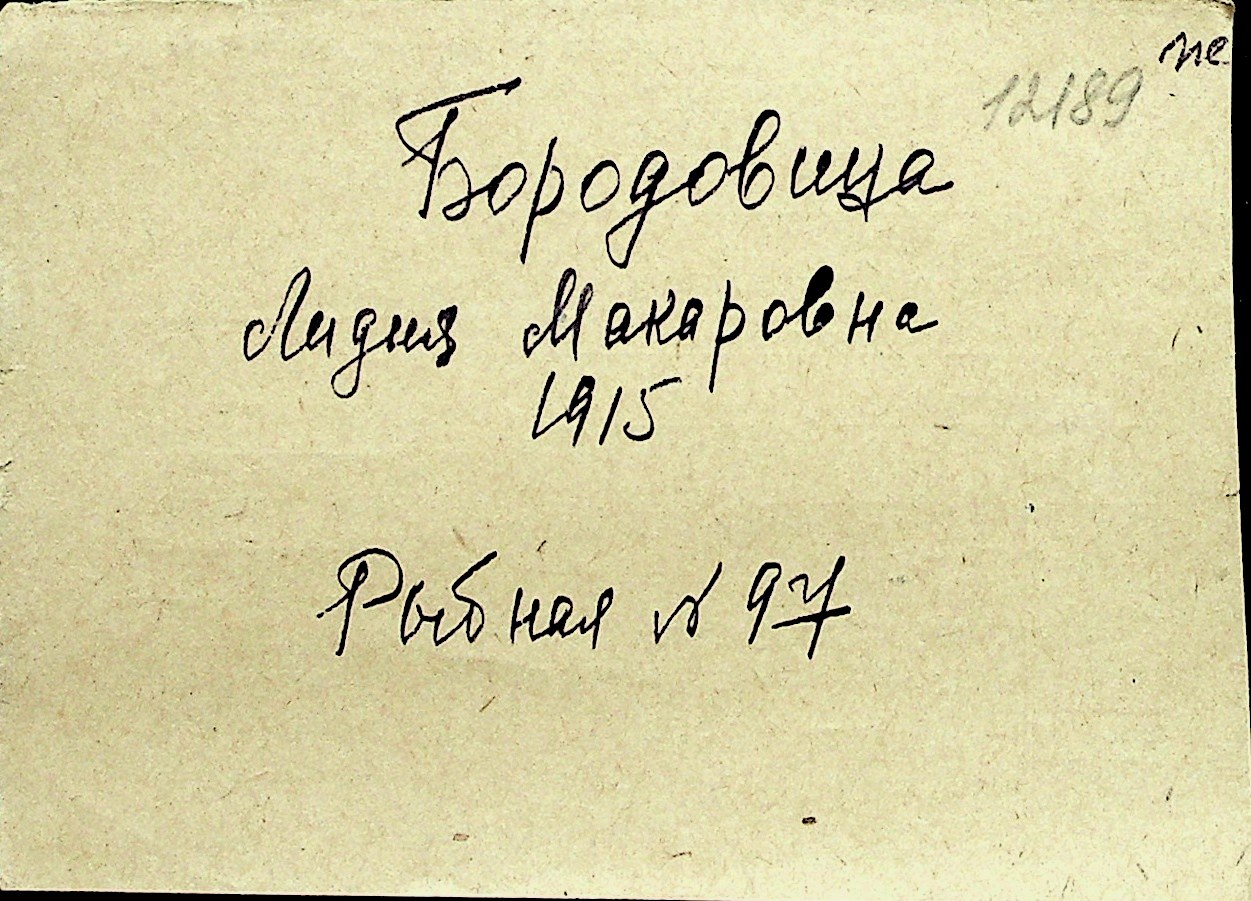 12189
Бородовица
Лидия Макаровна
1915
Рыбная № 97